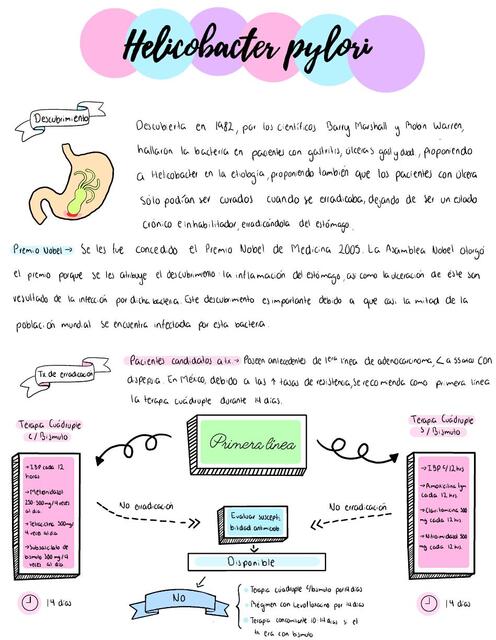 Helicobacter pylori
Descubrimiento
Descubierta en 1982, por los científicos Barry Marshall y Robin Warren,
hallaron la bacteria en pacientes con gastritis, úlceras gast y duod, proponiendo
a Helicobacter en la etiología, proponiendo también que los pacientes con úlcera
solo podían ser curados cuando se erradicaba, dejando de ser un estado
crónico e inhabilitador, erradicándola del estómago.
Premio Nobel → Se les fue concedido el Premio Nobel de Medicina 2005. La Asamblea Nobel otorgó
el premio porque se les atribuye el descubrimiento: la inflamación del estómago, así como la ulceración de éste son
resultado de la infección por dicha bacteria. Este descubrimiento es importante debido a que casi la mitad de la
población mundial se encuentra infectada por esta bacteria.
Tx de erradicación
Pacientes candidatos a tx. → Poseen antecedentes de 1era línea de adenocarcinoma, < a 55 años con
dispepsia. En México, debido a las ↑ tasas de resistencia, se recomienda como primera línea
la terapia cuádruple durante 14 días.
Terapia Cuádruple
c/ Bismuto
→ IBP cada 12
horas
→ Metronidazol
250-500mg/4 veces
al día
→ Tetraciclina 500mg/
4 veces al día
→ Subsalicilato de
bismuto 300 mg/4
veces al día
14 días
Primera línea
No erradicación
No erradicación
Evaluar suscepti
bilidad antimicrob
Disponible
No
• Terapia cuádruple s/bismuto por 14 días
• Régimen con Levofloxacino por 14 días
• Terapia concomitante 10-14 días si el
tx era con bismuto
Terapia Cuádruple
S/ Bismuto
→ IBP c/12 hrs
→ Amoxicilina 1gr
cada 12 hrs
→ Claritromicina 500
mg cada 12 hrs
→ Nitroimidazol 500
mg cada 12 hrs
14 días